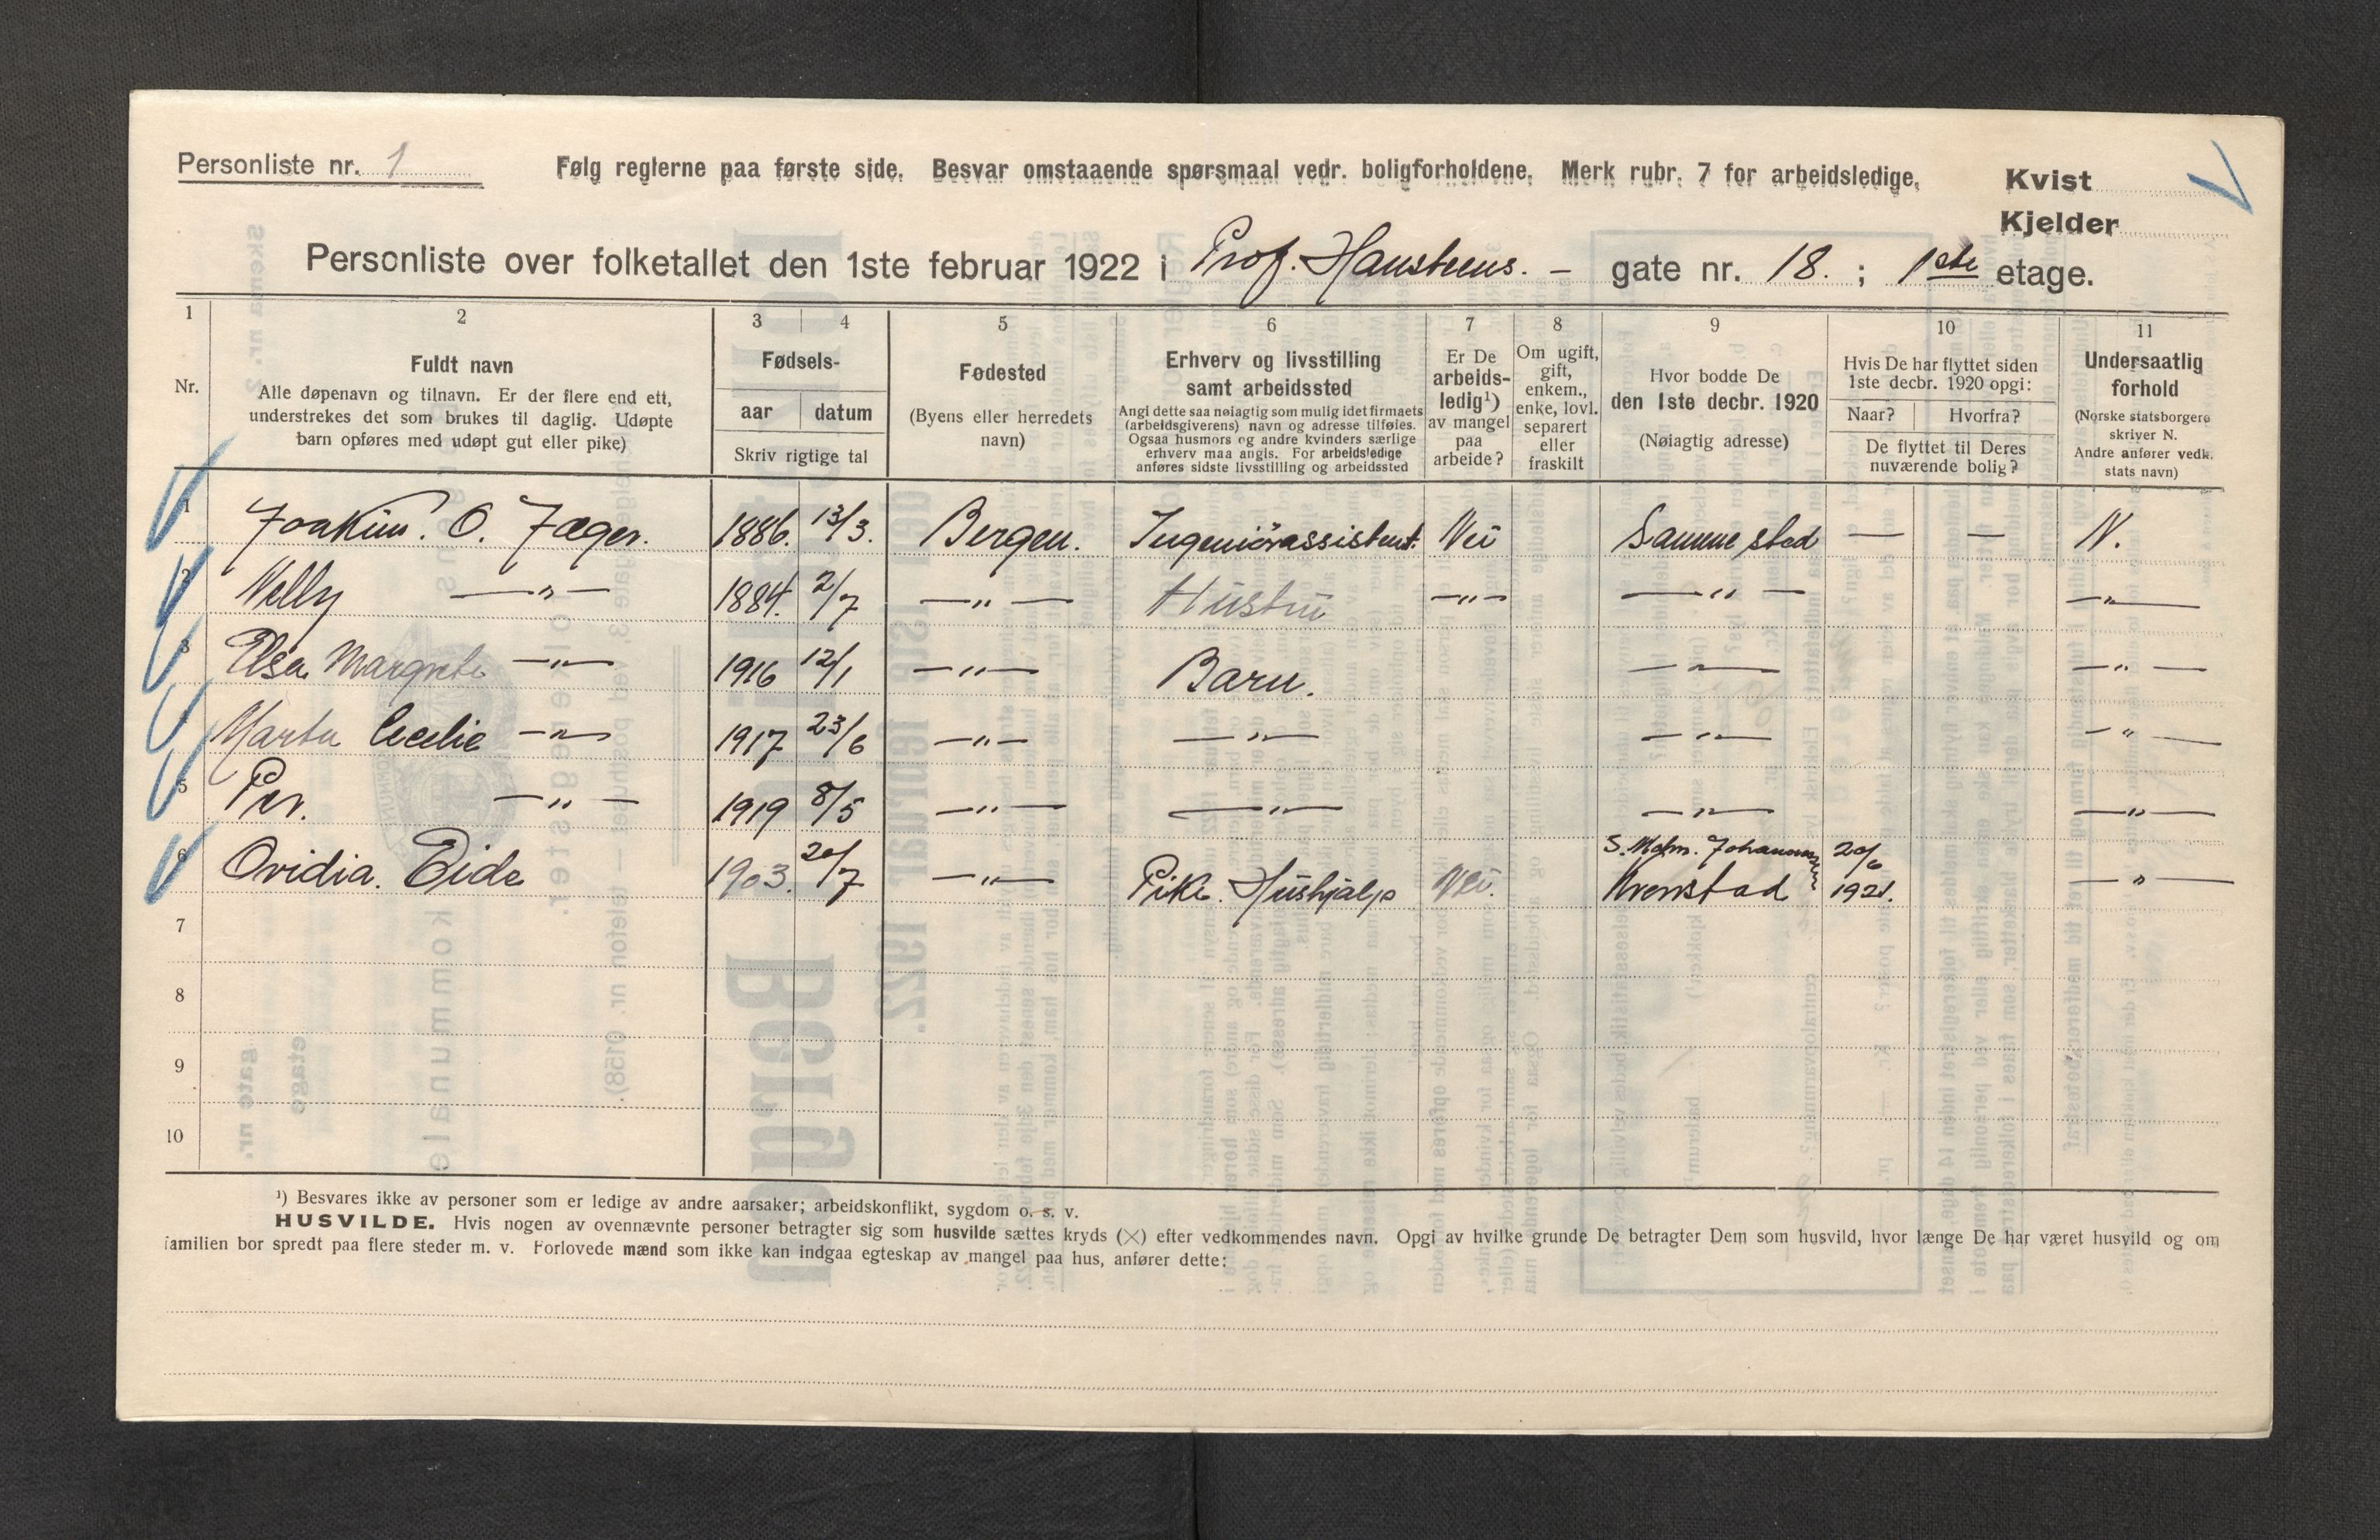 Personliste nr. 1
Følg reglerne paa første side. Besvar omstaaende spørsmaal vedr. boligforholdene. Merk rubr. 7 for arbeidsledige.
Kvist
Kjelder
Personliste over folketallet den 1ste februar 1922 i Prof. Hansteens. – gate nr. 18. ; 1ste etage.
1 2 3 4 5 6 7 8 9 10 11
Nr.
Fuldt navn
Alle døpenavn og tilnavn. Er der flere end ett,
understrekes det som brukes til daglig. Udøpte
barn opføres med udøpt gut eller pike)
Fødsels-
aar datum
Skriv rigtige tal
Fødested
(Byens eller herredets
navn)
Erhverv og livsstilling
samt arbeidssted
Angi dette saa nøiagtig som mulig idet firmaets
(arbeidsgiverens) navn og adresse tilføies.
Ogsaa husmors og andre kvinders særlige
erhverv maa angis. For arbeidsledige
anføres sidste livsstilling og arbeidssted
Er De
arbeids-
ledig¹)
av mangel
paa
arbeide?
Om ugift,
gift,
enkem.,
enke, lovl.
separert
eller
fraskilt
Hvor bodde De
den 1ste decbr. 1920
(Nøiagtig adresse)
Hvis De har flyttet siden
1ste decbr. 1920 opgi:
Naar? Hvorfra?
De flyttet til Deres
nuværende bolig?
Undersaatlig
forhold
(Norske statsborgere
skriver N.
Andre anfører vedk.
stats navn)
1 Joakim. O. Jæger. 1886. 13/3. Bergen. Ingeniörassistent. Nei Samme sted — — N.
2 Nelly —"— 1884. 2/7 —"— Hustru —"— —"— —"—
3 Elsa Margrete —"— 1916 12/1 —"— Barn. —"— —"—
4 Marta Cecilie —"— 1917 23/6 —"— —"— —"— —"—
5 Per. —"— 1919 8/5 —"— —"— —"— —"—
6 Ovidia. Eide 1903. 20/7 —"— Pike. Hushjælp Nei. S. Mdm. Johannesen 20/6 —"—
Kronstad 1921.
7
8
9
10
¹) Besvares ikke av personer som er ledige av andre aarsaker; arbeidskonflikt, sygdom o. s. v.
HUSVILDE. Hvis nogen av ovennævnte personer betragter sig som husvilde sættes kryds (×) efter vedkommendes navn. Opgi av hvilke grunde De betragter Dem som husvild, hvor længe De har været husvild og om
familien bor spredt paa flere steder m. v. Forlovede mænd som ikke kan indgaa egteskap av mangel paa hus, anfører dette: